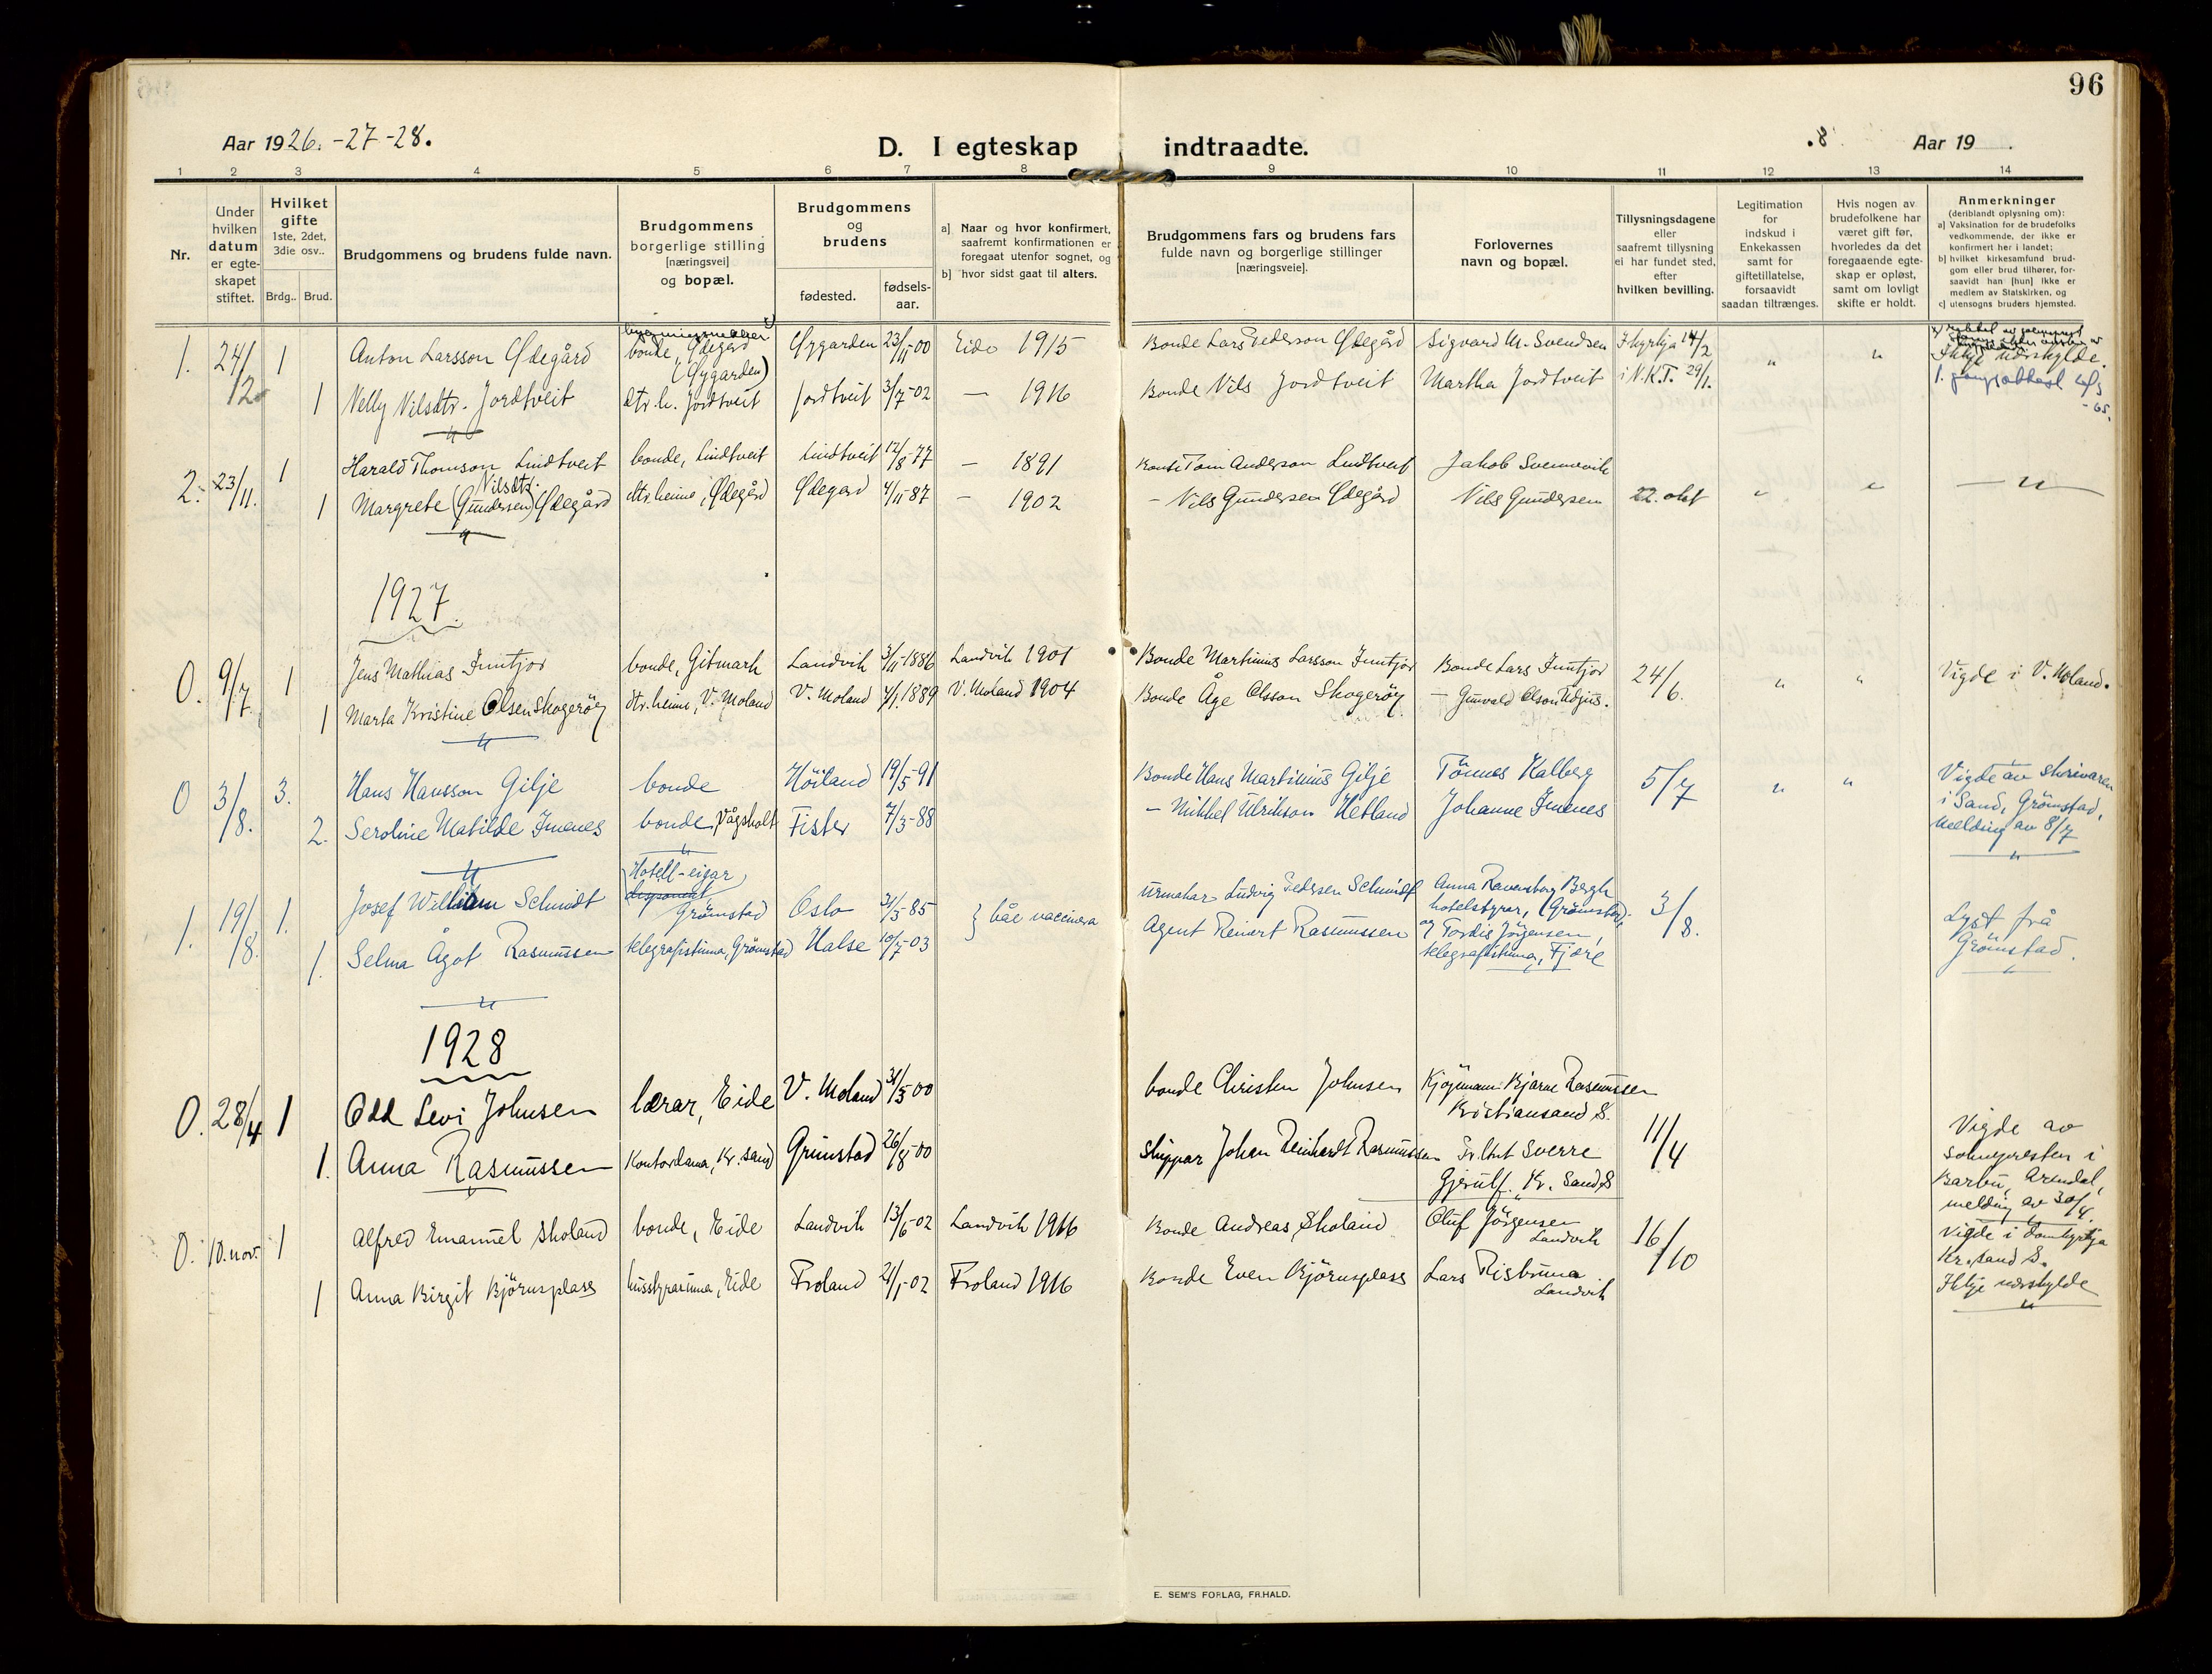 96
Aar 1926.-27-28.
D. I egteskap indtraadte.
.8.
Aar 19 .
1 2 3 4 5 6 7 8 9 10 11 12 13 14
Nr.
Under
hvilken
datum
er egte-
skapet
stiftet.
Hvilket
gifte
1ste, 2det,
3die osv..
Brdg.. Brud.
Brudgommens og brudens fulde navn.
Brudgommens
borgerlige stilling
[næringsvei]
og bopæl.
Brudgommens
og
brudens
fødested.
fødsels-
aar.
a] Naar og hvor konfirmert,
saafremt konfirmationen er
foregaat utenfor sognet, og
b] hvor sidst gaat til alters.
Brudgommens fars og brudens fars
fulde navn og borgerlige stillinger
[næringsveie].
Forlovernes
navn og bopæl.
Tillysningsdagene
eller
saafremt tillysning
ei har fundet sted,
efter
hvilken bevilling.
Legitimation
for
indskud i
Enkekassen
samt for
giftetillatelse,
forsaavidt
saadan tiltrænges.
Hvis nogen av
brudefolkene har
været gift før,
hvorledes da det
foregaaende egte-
skap er opløst,
samt om lovligt
skifte er holdt.
Anmerkninger
(deriblandt oplysning om):
a) Vaksination for de brudefolks
vedkommende, der ikke er
konfirmert her i landet;
b) hvilket kirkesamfund brud-
gom eller brud tilhører, for-
saavidt han [hun] ikke er
medlem av Statskirken, og
c) utensogns bruders hjemsted.
1. 24/12 1 Anton Larsson Ødegård bonde, Ødegård (Øygarden) Øygarden 23/11-00 Eide 1915 Bonde Lars Pederson Ødegård Sigvard M. Svendsen I kyrkja 14/2 " " Ikkje udrskylde.
1 Nelly Nilsdtr. Jordtveit dtr. h. Jordtveit Jordtveit 3/7-02 — 1916 Bonde Nils Jordtveit Martha Jordtveit i N.K.T. 29/1.
2. 23/11. 1 Harald Thomson Lindtveit bonde, Lindtveit Lindtveit 12/8-77 — 1891 Bonde Tom Anderson Lindtveit Jakob Svennevik
1 Margrete (Gundersen) Nilsdtr. Ødegård dtr. heime, Ødegård Ødegard 4/11-87 — 1902 — Nils Gundersen Ødegård Nils Gundersen 22. okt " " — " —
1927.
0. 9/7. 1 Jens Mathias Inntjor bonde, Gitmark Landvik 3/11-1886 Landvik 1901 Bonde Martinius Larsson Inntjor Bonde Lars Inntjor 24/6. " " Vigde i V. Moland.
1 Marta Kristine Olsen Skogerøy dtr. heime, V. Moland V. Moland 4/1.1889 V. Moland 1904 Bonde Åge Olsson Skogerøy — Gunvald Olson Udjus.
0 3/8. 3. Hans Hansson Gilje bonde Höiland 19/5-91 Bonde Hans Martinius Gilje Tönnes Kalberg 5/7 " " Vigde av skrivaren
2. Seroline Matilde Imenes bonde, Vågsholt Fister 7/3-88 — Mikkel Ulrikson Hetland Johanne Imenes i Sand, Grömstad,
melding av 8/7
1. 19/8. 1. Josef William Schmidt Hotell-eigar Grömstad Oslo 31/3-85 } båe vaccinera Urmakar Ludvig Pedersen Schmidt Anna Ravensborg Bergh hotelstyrar, (Grömstad), 3/8. Lyst frå Grömstad.
1. Selma Ågot Rasmussen telegrafistinna, Grömstad Halse 10/7-03 Agent Reinert Rasmussen og Tordis Jörgensen, telegrafistinna, Fjære
1928
0. 28/4 1 Odd Levi Johnsen lærar, Eide V. Moland 31/3-00 bonde Christen Johnsen Kjøpmann Bjarne Rasmussen Kristiansand S. 11/4 Vigde av
1. Anna Rasmussen Kontordama, Kr. sand Grimstad 26/8-00 Skippar Johan Reinhardt Rasmussen Fr. Lnt Sverre Gjerulf. Kr. Sand S sokneprésten i
Barbu, Arendal,
melding av 30/4.
0. 10. nov. 1 Alfred Emanuel Skoland bonde, Eide Landvik 13/6-02 Landvik 1916 Bonde Andreas Skoland Oluf Jörgensen Landvik 16/10 Vigde i Domkyrkja
1 Anna Birgit Björnsplass husstyrarinna, Eide Froland 21/1-02 Froland 1916 Bonde Even Björnsplass Lars Risbruna Landvik Kr. sand S.
Ikkje udrskylde
E. SEM'S FORLAG, FR.HALD.